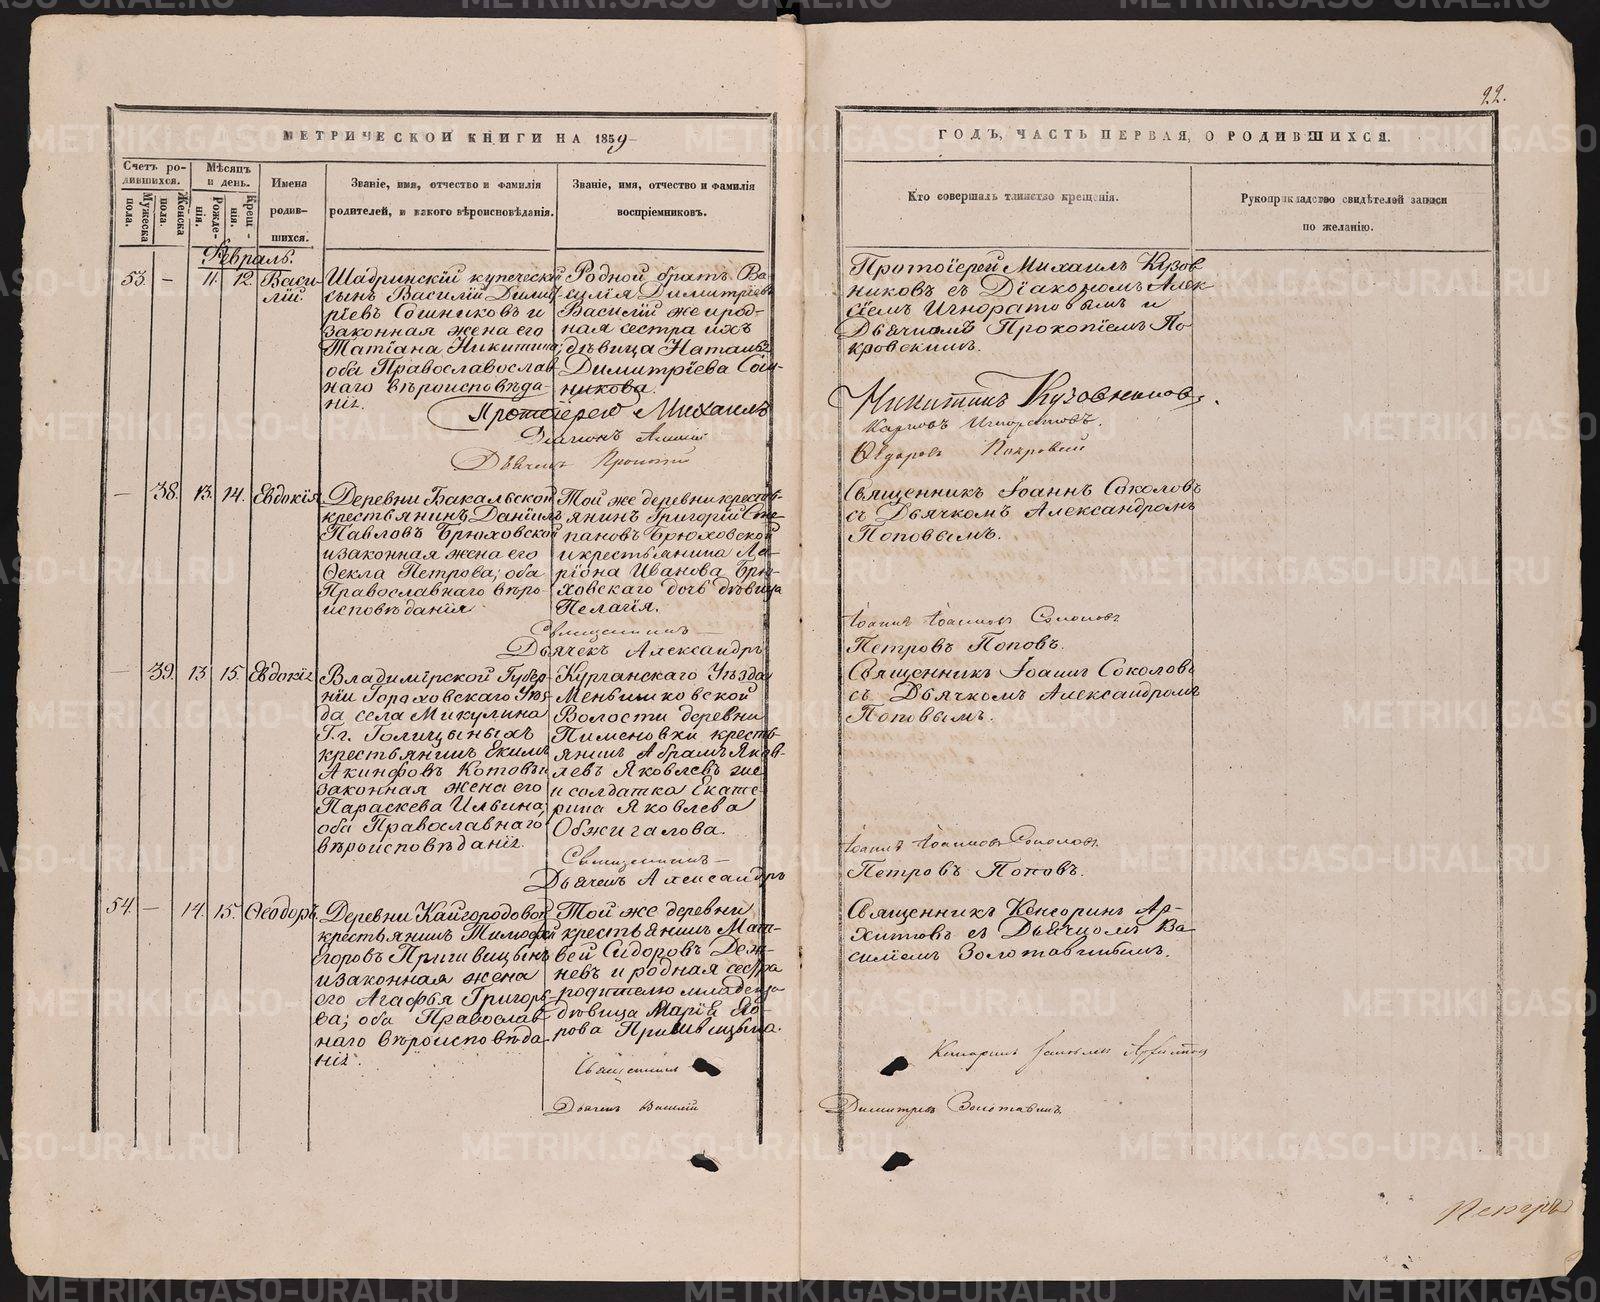 22.
МЕТРИЧЕСКОЙ КНИГИ НА 1859
ГОДЪ, ЧАСТЬ ПЕРВАЯ, О РОДИВШИХСЯ.
Счетъ родившихся.
Мужеска пола.
Женска пола.
Мѣсяцъ и день.
Рожденія.
Крещенія.
Имена родившихся.
Званіе, имя, отчество и фамилія
родителей, и какого вѣроисповѣданія.
Званіе, имя, отчество и фамилія
воспріемниковъ.
Кто совершалъ таинство крещенія.
Рукоприкладство свидѣтелей записи
по желанію.
Февраль.
53. — 11. 12. Васи-
лій.
Шадринскій купеческій
сынъ Василій Дими-
ріевъ Сошниковъ и
законная жена его
Татіана Никитина;
оба Православослав-
наго вѣроисповѣда-
нія.
Родной братъ Ва-
силія Димитріевъ
Василій же и род-
ная сестра ихъ
дѣвица Наталья
Димитріева Сош-
никова.
Протоіерей Михаилъ Кузов-
никовъ съ Діакономъ Алек-
сіемъ Игноратовымъ и
Дьячкомъ Прокопіемъ По-
кровскимъ.
Протоіерей Михаилъ
Никитинъ Кузовниковъ.
Діаконъ Алексій
Карповъ Игноратовъ.
Дьячекъ Прокопій
Ѳедоровъ Покровскій
— 38. 13. 14. Евдокія
Деревни Бакальской
крестьянинъ Даніилъ
Павловъ Брюховской
и законная жена его
Ѳекла Петрова; оба
Православнаго вѣро-
исповѣданія
Той же деревни кресть-
янинъ Григорій Сте-
пановъ Брюховской
и крестьянина Ла-
ріона Иванова Брю-
ховскаго дочь дѣвица
Пелагія.
Священникъ Іоаннъ Соколовъ
съ Дьячкомъ Александромъ
Поповымъ.
Священникъ
Іоаннъ Іоанновъ Соколовъ
Дьячекъ Александръ
Петровъ Поповъ.
— 39. 13. 15. Евдокія
Владимірской Губер-
ніи Гораховскаго Уѣз-
да села Микулина
Г. г. Голицыныхъ
крестьянинъ Екимъ
Акинфовъ Котовъ и
законная жена его
Параскева Ильина;
оба Православнаго
вѣроисповѣданія.
Курганскаго Уѣзда
Меньшиковской
Волости деревни
Пименовки кресть-
янинъ Абрамъ Яков-
левъ Яковлевъ же
и солдатка Екате-
рина Яковлева
Обжигалова.
Священникъ Іоаннъ Соколовъ
съ Дьячкомъ Александромъ
Поповымъ.
Священникъ
Іоаннъ Іоанновъ Соколовъ
Дьячекъ Александръ
Петровъ Поповъ.
54. — 14. 15. Ѳеодоръ.
Деревни Кайгородовой
крестьянинъ Тимофей
Егоровъ Пришвицынъ
и законная жена
его Агафья Григорь-
ева; оба Православ-
наго вѣроисповѣда-
нія.
Той же деревни
крестьянинъ Мат-
вей Сидоровъ Деж-
невъ и родная сестра
родителю младенца
дѣвица Марія Его-
рова Пришвицына.
Священникъ Кенсоринъ Ар-
хиповъ съ Дьячкомъ Ва-
силіемъ Золотавинымъ.
Священникъ
Кенсоринъ
Дьячекъ Василій
Димитріевъ Золотавинъ
METRIKI.GASO-URAL.RU